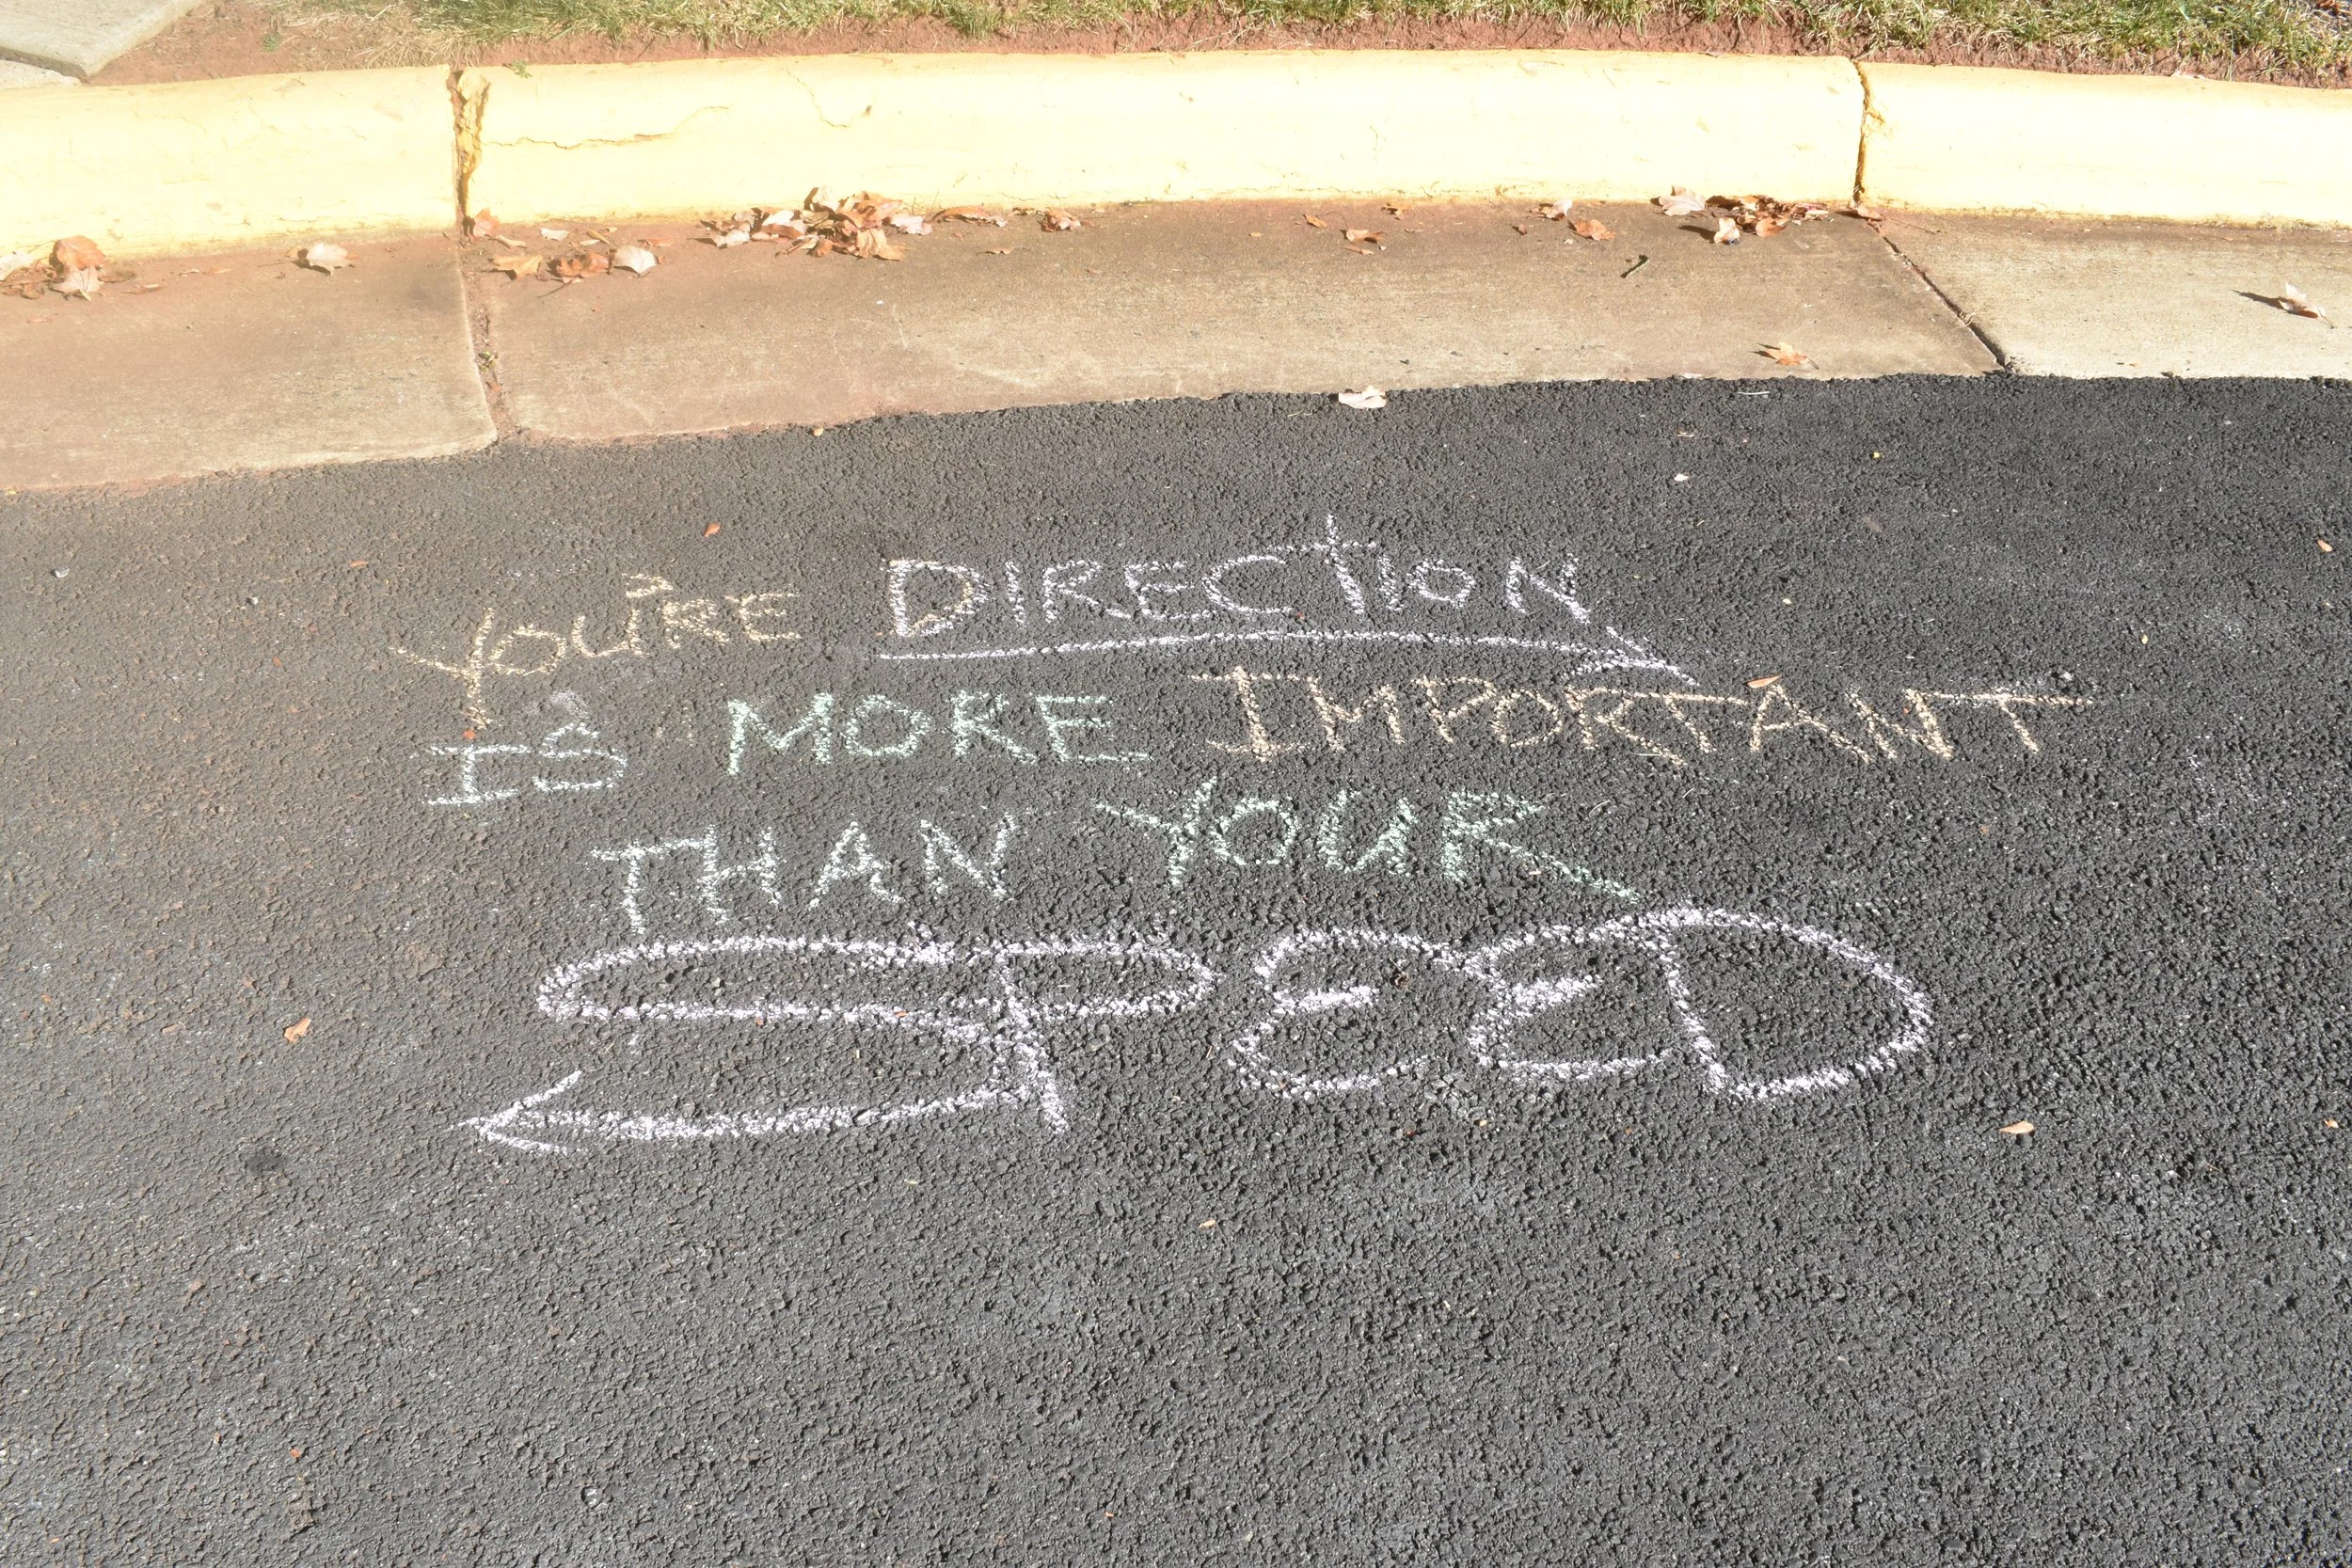 YOU'RE DIRECTION
IS MORE IMPORTANT
THAN YOUR
SPEED